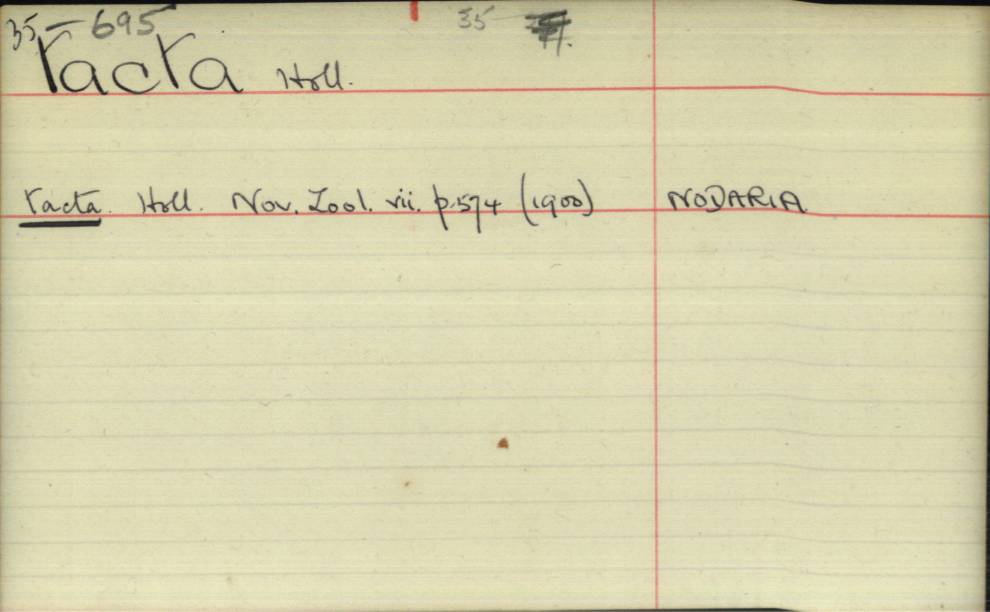 35-695 35
Tacta Holl.
tacta. Holl. Nov. Zool. vii. p.574 (1900) NODARIA